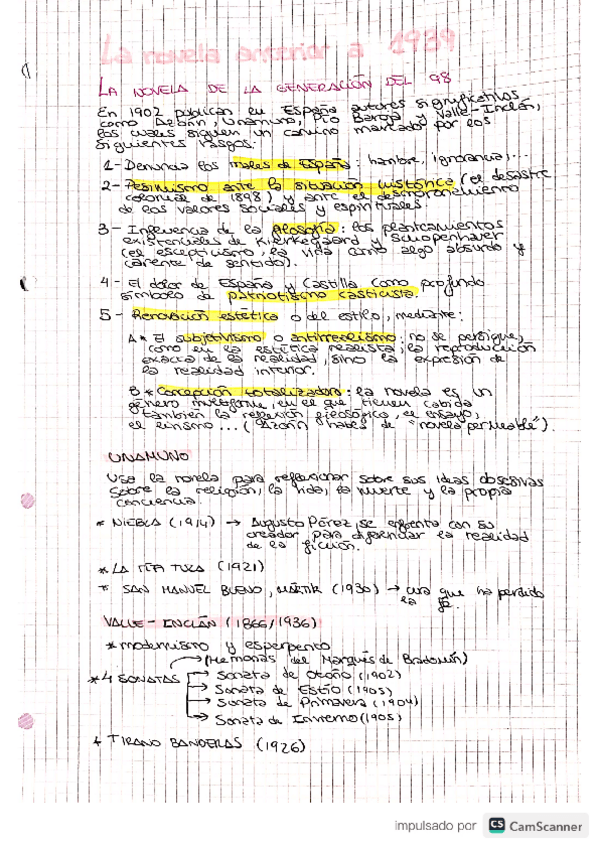 La novela anterior a 1939
LA NOVELA DE LA GENERACIÓN DEL 98
En 1902 publican en España autores significativos
como Azorín, Unamuno, Pío Baroja y Valle-Inclán,
los cuales siguen un camino marcado por los
siguientes rasgos:
1- Denuncia los males de España: hambre, ignorancia,...
2- Pesimismo ante la situación histórica (el desastre
colonial de 1898) y ante el desmoronamiento
de los valores sociales y espirituales.
3- Influencia de la filosofía: los planteamientos
existenciales de Kierkegaard y Schopenhauer
(el escepticismo, la vida como algo absurdo y
carente de sentido).
4- El dolor de España y Castilla como profundo
símbolo de patriotismo casticista.
5- Renovación estética o del estilo, mediante:
A* El subjetivismo o antirrealismo: no se persigue,
como en la estética realista, la reproducción
exacta de la realidad, sino la expresión de
la realidad interior.
B* Concepción totalizadora: la novela es un
género multiforme, en el que tienen cabida
también la reflexión filosófica, el ensayo,
el lirismo... (Azorín habla de "novela permeable").
UNAMUNO
Usa la novela para reflexionar sobre sus ideas obsesivas
sobre la religión, la vida, la muerte y la propia
conciencia.
* NIEBLA (1914) → Augusto Pérez se enfrenta con su
creador para difuminar la realidad
de la ficción.
* LA TÍA TULA (1921)
* SAN MANUEL BUENO, MÁRTIR (1930) → cura que ha perdido
la fe.
VALLE-INCLÁN (1866/1936)
* modernismo y esperpento
(Memorias del Marqués de Bradomín)
* 4 SONATAS → Sonata de Otoño (1902)
→ Sonata de Estío (1903)
→ Sonata de Primavera (1904)
→ Sonata de Invierno (1905)
* TIRANO BANDERAS (1926)
impulsado por CS CamScanner